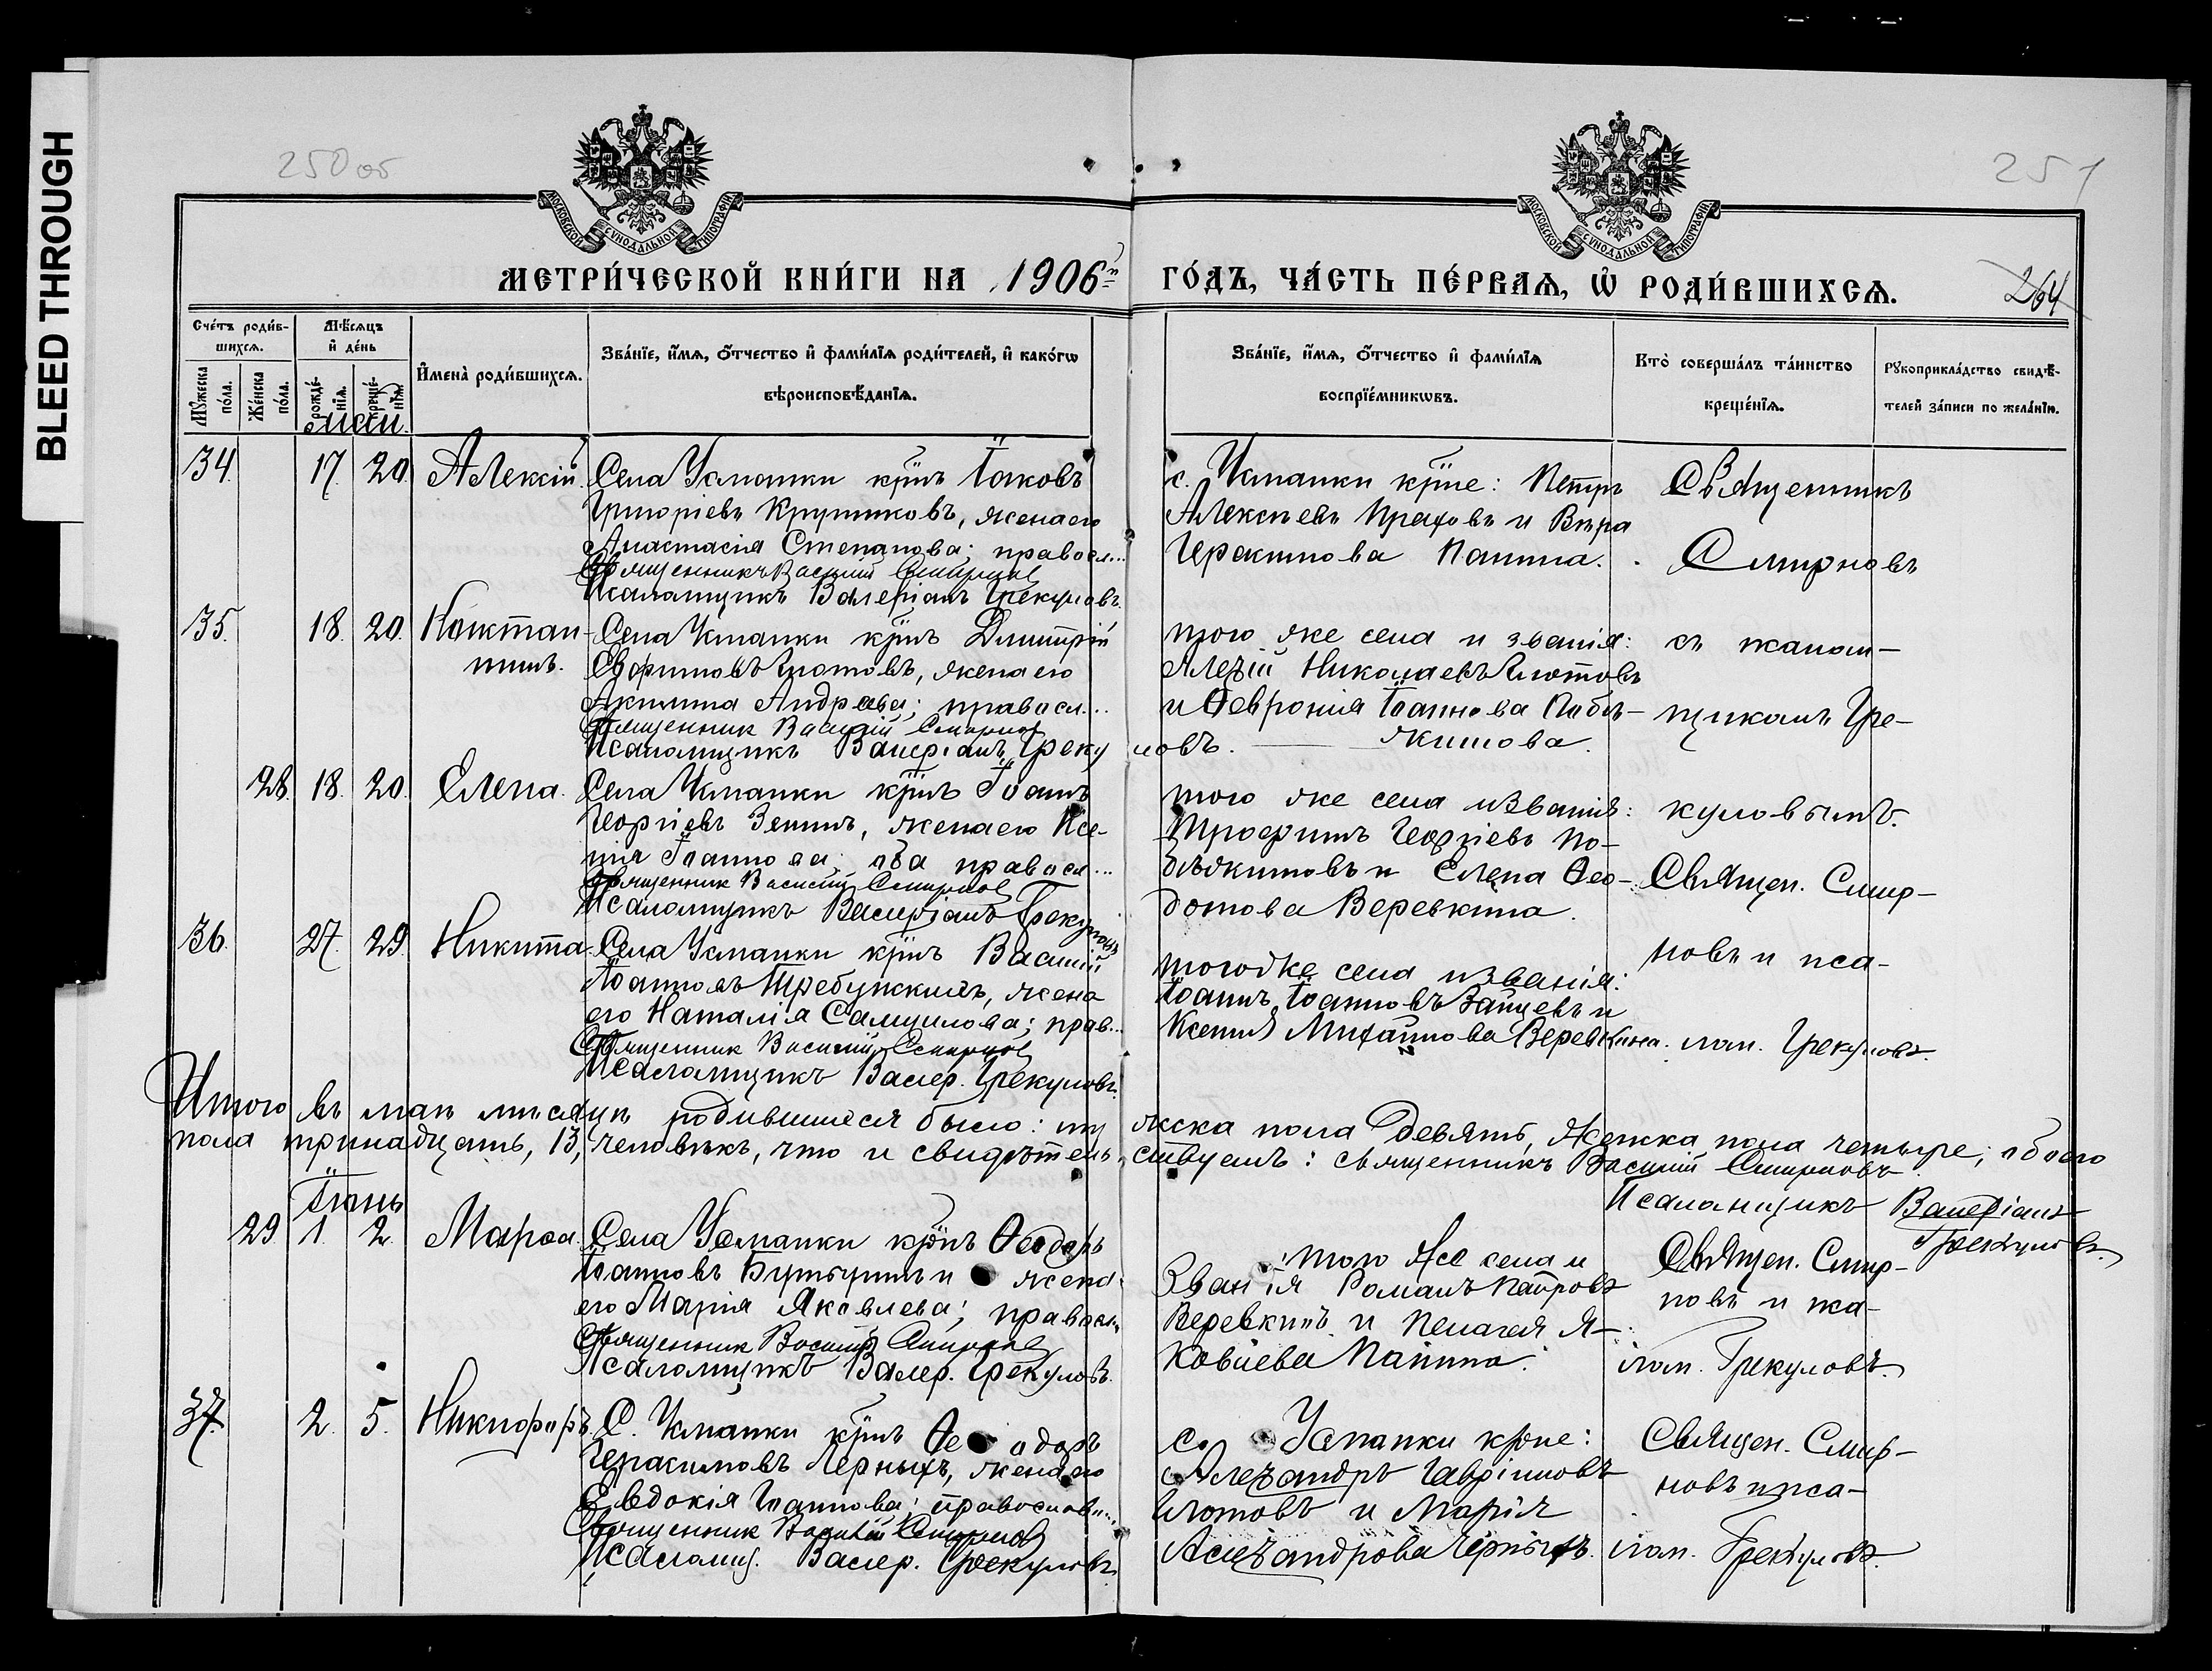 BLEED THROUGH
250об
251
МОСКОВСКОЙ СУНОДАЛЬНОЙ ТИПОГРАФІИ
МОСКОВСКОЙ СУНОДАЛЬНОЙ ТИПОГРАФІИ
МЕТРИ́ЧЕСКОЙ КНИ́ГИ НА 1906й ГО́ДЪ, ЧА́СТЬ ПЕ́РВАѦ, Ѡ҆ РОДИ́ВШИХСѦ.
264
Сче́тъ роди́в-
шихсѧ.
Мꙋ́жеска по́ла.
Же́нска по́ла.
Мѣ́сѧцъ и҆ де́нь
рожде́-нїѧ.
креще́-нїѧ.
И҆мена̀ роди́вшихсѧ.
Зва́нїе, и҆́мѧ, ѻ҆́тчество и҆ фами́лїѧ роди́телей, и҆ како́гѡ
вѣроисповѣ́данїѧ.
Зва́нїе, и҆́мѧ, ѻ҆́тчество и҆ фами́лїѧ
воспрїе́мникѡвъ.
Кто̀ соверша́лъ та́инство
креще́нїѧ.
Рꙋкоприкла́дство свидѣ́-
телей за́писи по жела́нїю.
Маій.
34. 17. 20. Алексій.
Села Усманки крнъ Іаковъ
Григоріевъ Крутиковъ, жена его
Анастасія Степанова; правосл...
Священникъ Василий Смирнов
Псаломщикъ Валеріанъ Грекуловъ.
с. Усманки крне: Петръ
Алексѣевъ Праховъ и Вѣра
Герасимова Панина.
Священникъ
Смирновъ
35. 18. 20. Констан-
тинъ.
Села Усманки крнъ Димитрій
Глотовъ, жена его
Акилина Андреева; правосл...
Священник Василий Смирнов
Псаломщикъ Валеріанъ Грекуловъ.
того же села и званія:
Алексій Николаевъ Глотовъ
и Ѳевронія Іоаннова Побѣ-
жимова.
съ псалом-
щикомъ Гре-
28. 18. 20. Елена.
Села Усманки крнъ Іоаннъ
Георгіевъ Зенинъ, жена его Ксе-
нія Іоаннова; оба правосл...
Священник Василий Смирнов
Псаломщикъ Валеріанъ Грекуловъ
того же села и званія:
Трофимъ Георгіевъ По-
бѣжимовъ и Елена Ѳео-
дотова Веревкина.
куловымъ.
Священ. Смир-
36. 27. 29. Никита
Села Усманки крнъ Василій
Іоанновъ Требунскихъ, жена
его Наталія Самуилова; прав...
Священник Василий Смирнов
Псаломщикъ Валер. Грекуловъ.
того же села и званія:
Іоаннъ Іоанновъ Зайцевъ и
Ксенія Михайлова Веревкина.
новъ и пса-
лом. Грекуловъ.
Итого въ маѣ мѣсяцѣ родившихся было: мужска пола девять, женска пола четыре; обоего
пола тринадцать, 13, человѣкъ, что и свидѣтельствуемъ: священникъ Василій Смирновъ
Псаломщикъ Валеріанъ
Грекуловъ.
Іюнь
29 1. 2. Марѳа.
Села Усманки крнъ Ѳеодоръ
Іоанновъ жена
его Марія Яковлева; правосл.
Священник Василий Смирнов
Псаломщикъ Валер. Грекуловъ.
того же села и
званія Романъ Петровъ
Веревкинъ и Пелагея Я-
ковлева Панина.
Священ. Смир-
новъ и пса-
лом. Грекуловъ.
37. 2. 5. Никифоръ.
С. Усманки крнъ Ѳеодоръ
Герасимовъ Черныхъ, жена его
Евдокія Іоаннова; православн...
Священник Василій Смирнов
Псаломщ. Валер. Грекуловъ.
с. Усманки крне:
Александръ Гавріиловъ
Глотовъ и Марія
Александрова Черныхъ.
Священ. Смир-
новъ и пса-
лом. Грекуловъ.